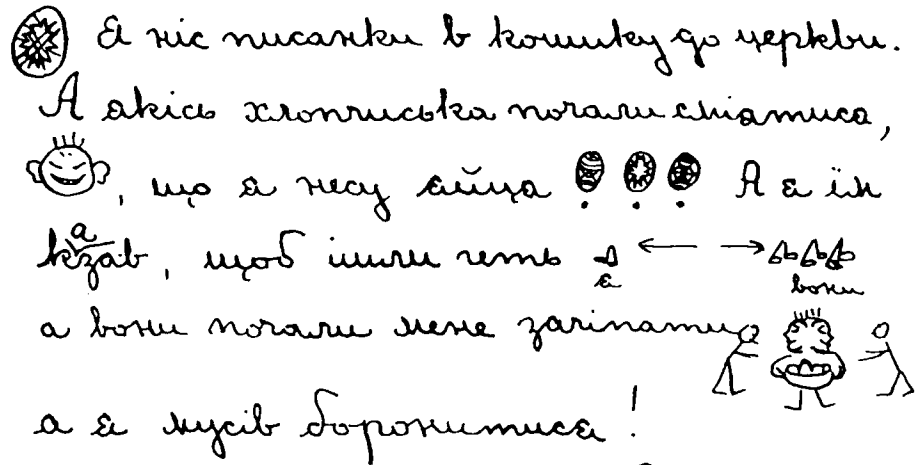 Я ніс писанки в кошику до церкви.
А якісь хлопчиська почали сміятися,
, що я несу яйця ... А я їм
казав, щоб ішли геть я ← → вони
а вони почали мене зачіпати
а я мусів боронитися!